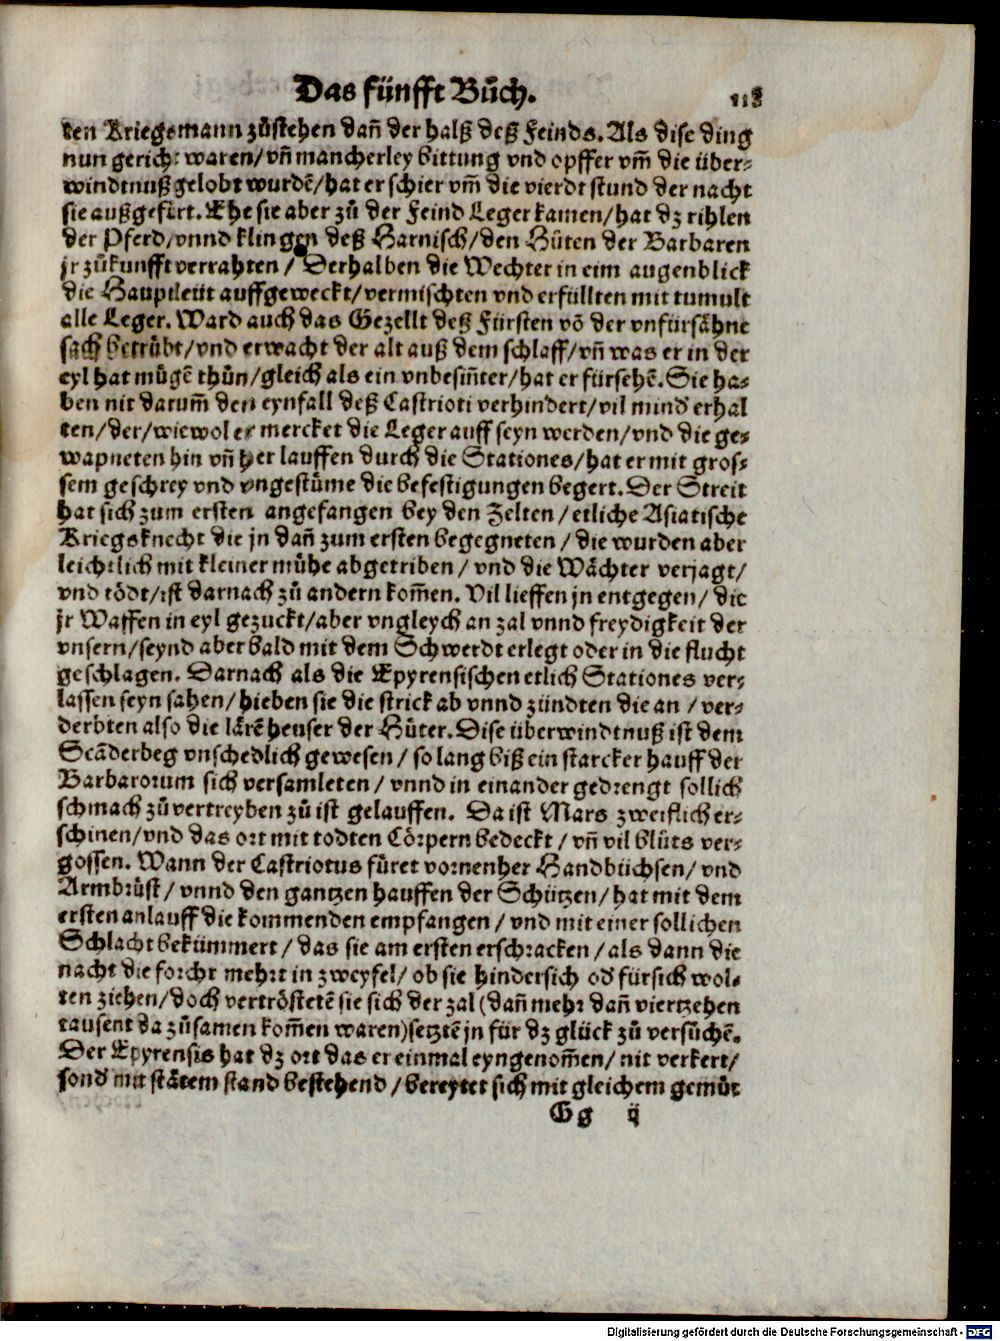 Das fünfft Bůch. 118
den Kriegsmann zůstehen dañ der halß deß Feinds. Als dise ding
nun gericht waren/ vñ mancherley bittung vnd opffer vm̃ die über-
windtnuß gelobt wurdẽ/ hat er schier vm̃ die vierdt stund der nacht
sie außgefůrt. Ehe sie aber zů der Feind Leger kamen/ hat dz rihlen
der Pferd/ vnnd klingen deß Harnisch/ den Hůten der Barbaren
jr zůkunfft verrahten/ Derhalben die Wechter in eim augenblick
die Hauptleüt auffgeweckt/ vermischten vnd erfüllten mit tumult
alle Leger. Ward auch das Gezellt deß Fürsten võ der vnfürsåhne
sach betrübt/ vnd erwacht der alt auß dem schlaff/ vñ was er in der
eyl hat mügẽ thůn/ gleich als ein vnbesiñter/ hat er fürsehẽ. Sie ha-
ben nit darum̃ den eynfall deß Castrioti verhindert/ vil mind erhal
ten/ der/ wiewol er mercket die Leger auff seyn werden/ vnd die ge-
wapneten hin vñ her lauffen durch die Stationes/ hat er mit gros-
sem geschrey vnd vngestüme die befestigungen begert. Der Streit
hat sich zum ersten angefangen bey den Zelten/ etliche Asiatische
Kriegsknecht die jn dañ zum ersten begegneten/ die wurden aber
leichtlich mit kleiner můhe abgetriben/ vnd die Wåchter verjagt/
vnd tödt/ ist darnach zů andern kom̃en. Vil lieffen jn entgegen/ die
jr Waffen in eyl gezuckt/ aber vngleych an zal vnnd freydigkeit der
vnsern/ seynd aber bald mit dem Schwerdt erlegt oder in die flucht
geschlagen. Darnach als die Epyrensischen etlich Stationes ver-
lassen seyn sahen/ hieben sie die strick ab vnnd zündten die an/ ver-
derbten also die lårẽ heuser der Hůter. Dise überwindtnuß ist dem
Scãderbeg vnschedlich gewesen/ so lang biß ein starcker hauff der
Barbarorum sich versamleten/ vnnd in einander gedrengt sollich
schmach zů vertreyben zů ist gelauffen. Da ist Mars zweiflich er-
schinen/ vnd das ort mit todten Cörpern bedeckt/ vñ vil blůts ver-
gossen. Wann der Castriotus füret vornenher Handbüchsen/ vnd
Armbrüst/ vnnd den gantzen hauffen der Schützen/ hat mit dem
ersten anlauff die kommenden empfangen/ vnd mit einer sollichen
Schlacht bekümmert/ das sie am ersten erschracken/ als dann die
nacht die forcht mehrt in zweyfel/ ob sie hindersich od fürsich wol-
ten ziehen/ doch vertröstetẽ sie sich der zal (dañ mehr dañ viertzehen
tausent da zůsamen kom̃en waren) setztẽ jn für dz glück zů versůchẽ.
Der Epyrensis hat dz ort das er einmal eyngenom̃en/ nit verkert/
sond mit ståtem stand bestehend/ bereytet sich mit gleichem gemůt
Gg ij
Digitalisierung gefördert durch die Deutsche Forschungsgemeinschaft - DFG